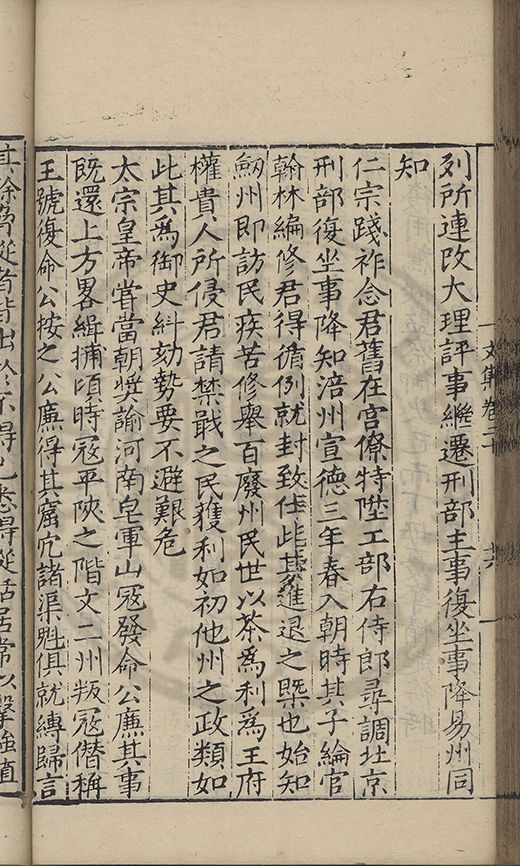 列所連改大理評事繼遷刑部主事復坐事降易州同
知
仁宗踐祚念君舊在宮僚特陞工部右侍郎尋調北京
刑部復坐事降知涪州宣德三年春入朝時其子綸官
翰林編修君得循例就封致仕此其進退之槩也始知
劒州即訪民疾苦修舉百廢州民世以茶為利為王府
權貴人所侵君請禁戢之民獲利如初他州之政類如
此其為御史糾劾勢要不避艱危
太宗皇帝甞當朝奬諭河南皂軍山冦發命公廉其事
既還上方畧緝捕頃時冦平陜之階文二州叛冦僭稱
王號復命公按之公廉得其窟宂諸渠魁俱就縛歸言
其餘脅從者皆出於不得已悉得從
居常以
文集卷二十
十六